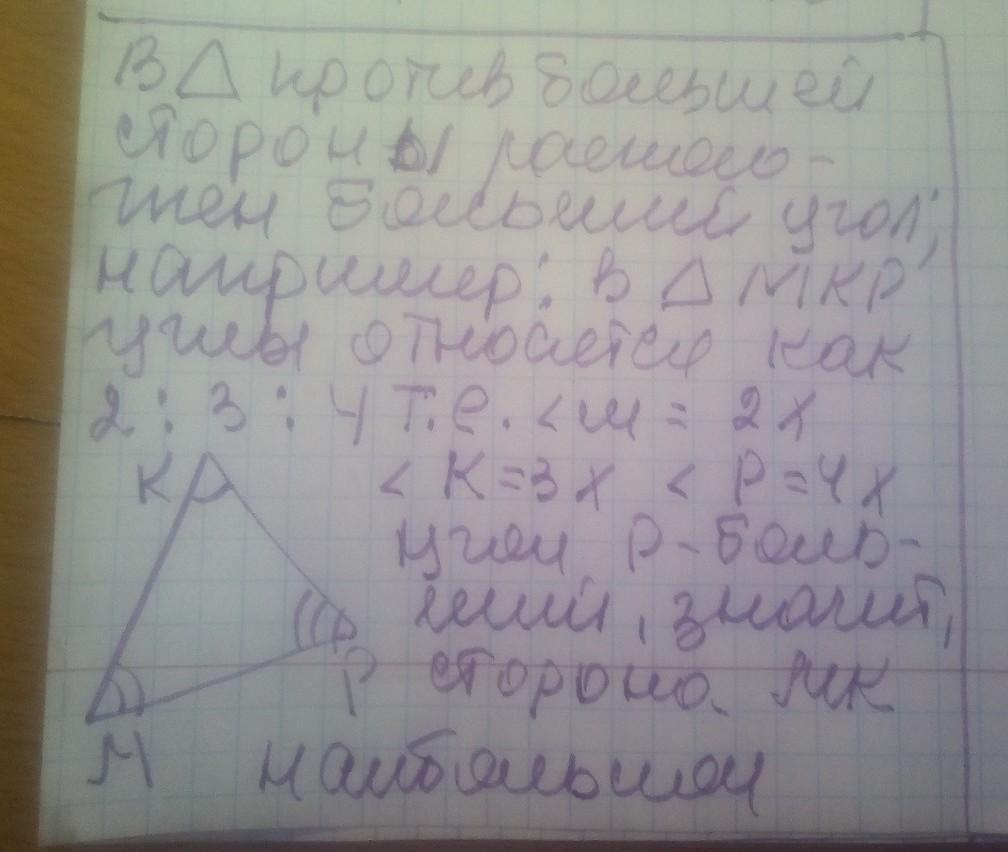 В △ против большей
стороны располо-
жен больший угол,
например: в △ МКР
углы относятся как
2 : 3 : 4 т.е. < м = 2х
К < К = 3х < Р = 4х
угол Р - боль-
ший, значит,
Р сторона МК
М наибольшая